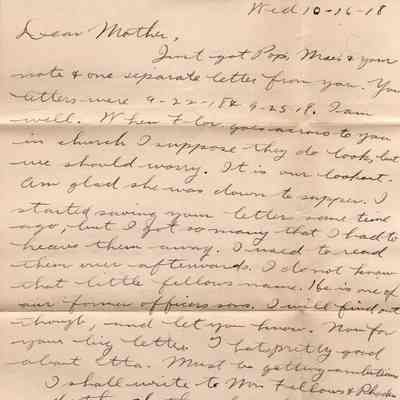 Wed 10-16-18
Dear Mother,
Just got Pop's, & your
note & one separate letter from you. Your
letters were 9-22-18 & 9-25-18. I am
well. When Flor goes across to you
in church I suppose they do look, but
we should worry. It is our lookout.
Am glad she was down to supper. I
started saving your letters some time
ago, but I got so many that I had to
heave them away. I used to read
them over afterwards. I do not know
that little fellows name. He is one of
our former officers sons. I will find out
though, and let you know. Now for
your big letter. I pretty good
about Etta. Must be getting ambitious
I shall write to Wm Fellows &